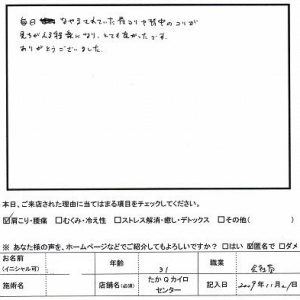 毎日 なやまされていた肩コリや背中のコリが
見ちがえる程楽になり、とても良かったです。
ありがとうございました。
本日、ご来店された理由に当てはまる項目をチェックしてください。
☑肩こり・腰痛 □むくみ・冷え性 □ストレス解消・癒し・デトックス □その他( )
※ あなた様の声を、ホームページなどでご紹介してもよろしいですか? □はい ☑匿名で □ダメ
お名前 (イニシャル可) 年齢 31 職業 会社員
施術名 店舗名(必須) たかQカイロセンター 記入日 2009年11月21日